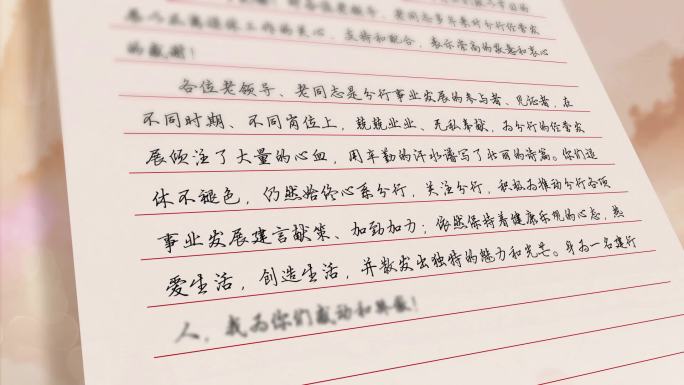 各位老领导、老同志多年来对分行经营发
心，支持和配合，表示崇高的敬意和衷心
的感谢！
各位老领导、老同志是分行事业发展的参与者、见证者，在
不同时期、不同岗位上，兢兢业业、无私奉献，为分行的经营发
展倾注了大量的心血，用辛勤的汗水谱写了壮丽的诗篇。你们退
休不褪色，仍然始终心系分行，关注分行，积极为推动分行各项
事业发展建言献策、加劲加力；依然保持着健康乐观的心态，热
爱生活，创造生活，并散发出独特的魅力和光芒。身为一名建行
人，我为你们感动和骄傲！